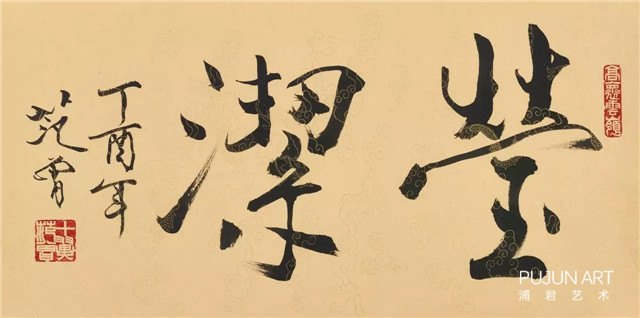 瑩潔
丁酉年
范曾
十翼
范曾
PUJUN ART
浦君艺术